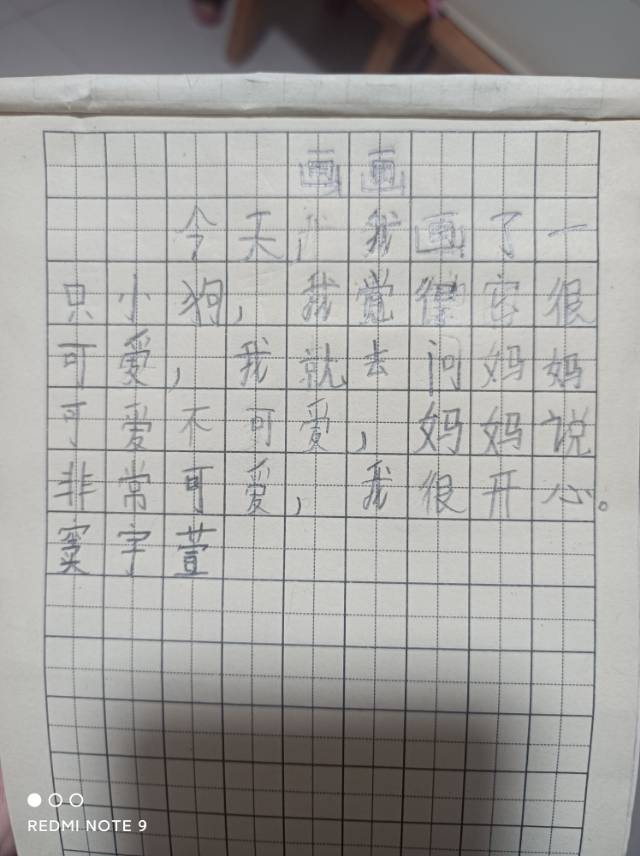 画画
今天，我画了一
只小狗，我觉得它很
可爱，我就去问妈妈
可爱不可爱，妈妈说
非常可爱，我很开心。
窦宇萱
REDMI NOTE 9